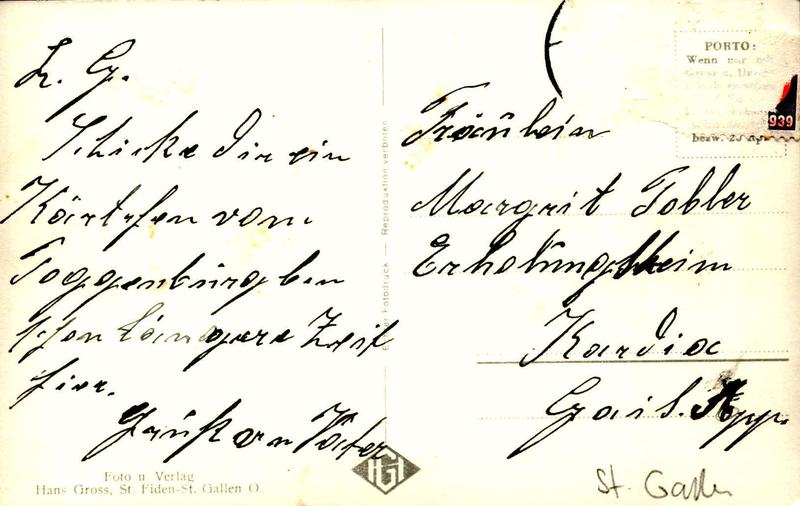 L. G.
Schicke Dir ein
Kärtchen vom
Toggenburg bin
schon längere Zeit
hier.
Gruß an Vater
Foto u Verlag
Hans Gross, St. Fiden-St. Gallen O.
Echter Fotodruck — Reproduktion verboten
HGF
PORTO:
Wenn nur
bezw. 20 Rp.
939
Fräulein
Margrit Tobler
Erholungsheim
Kardia
Gais. App.
St. Gallen